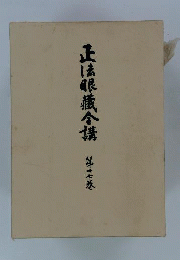 正法眼藏全講
第十七巻